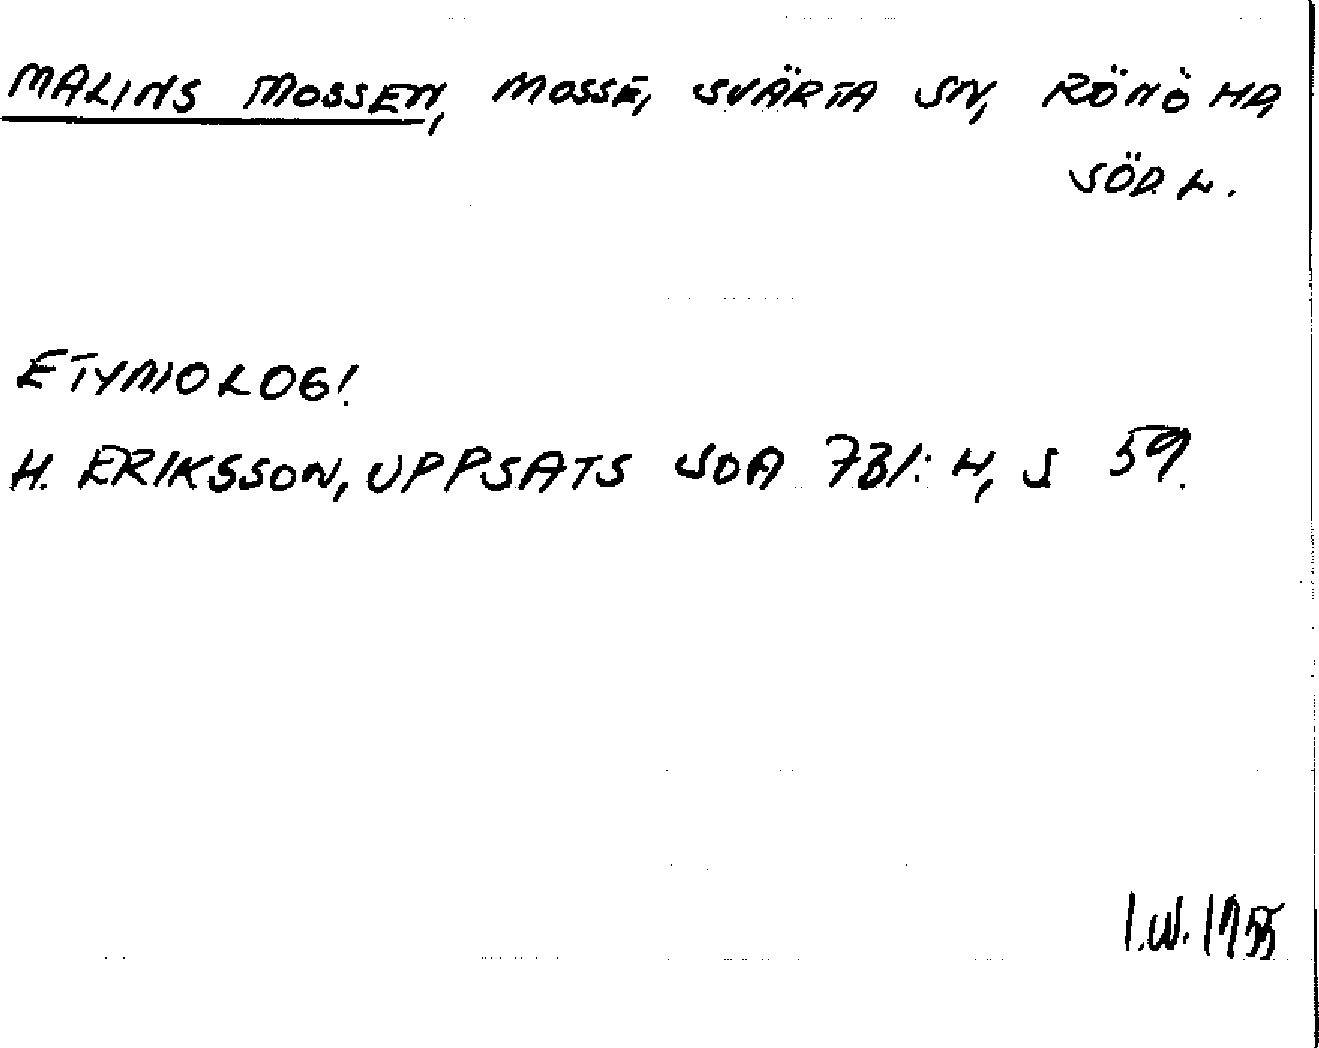 MALINS MOSSEN, MOSSE, SVÄRTA SN, RÖNÖ HD,
SÖDL.
ETYMOLOGI
H. ERIKSSON, UPPSATS SOA 731:4, S 59.
I.W. 1955